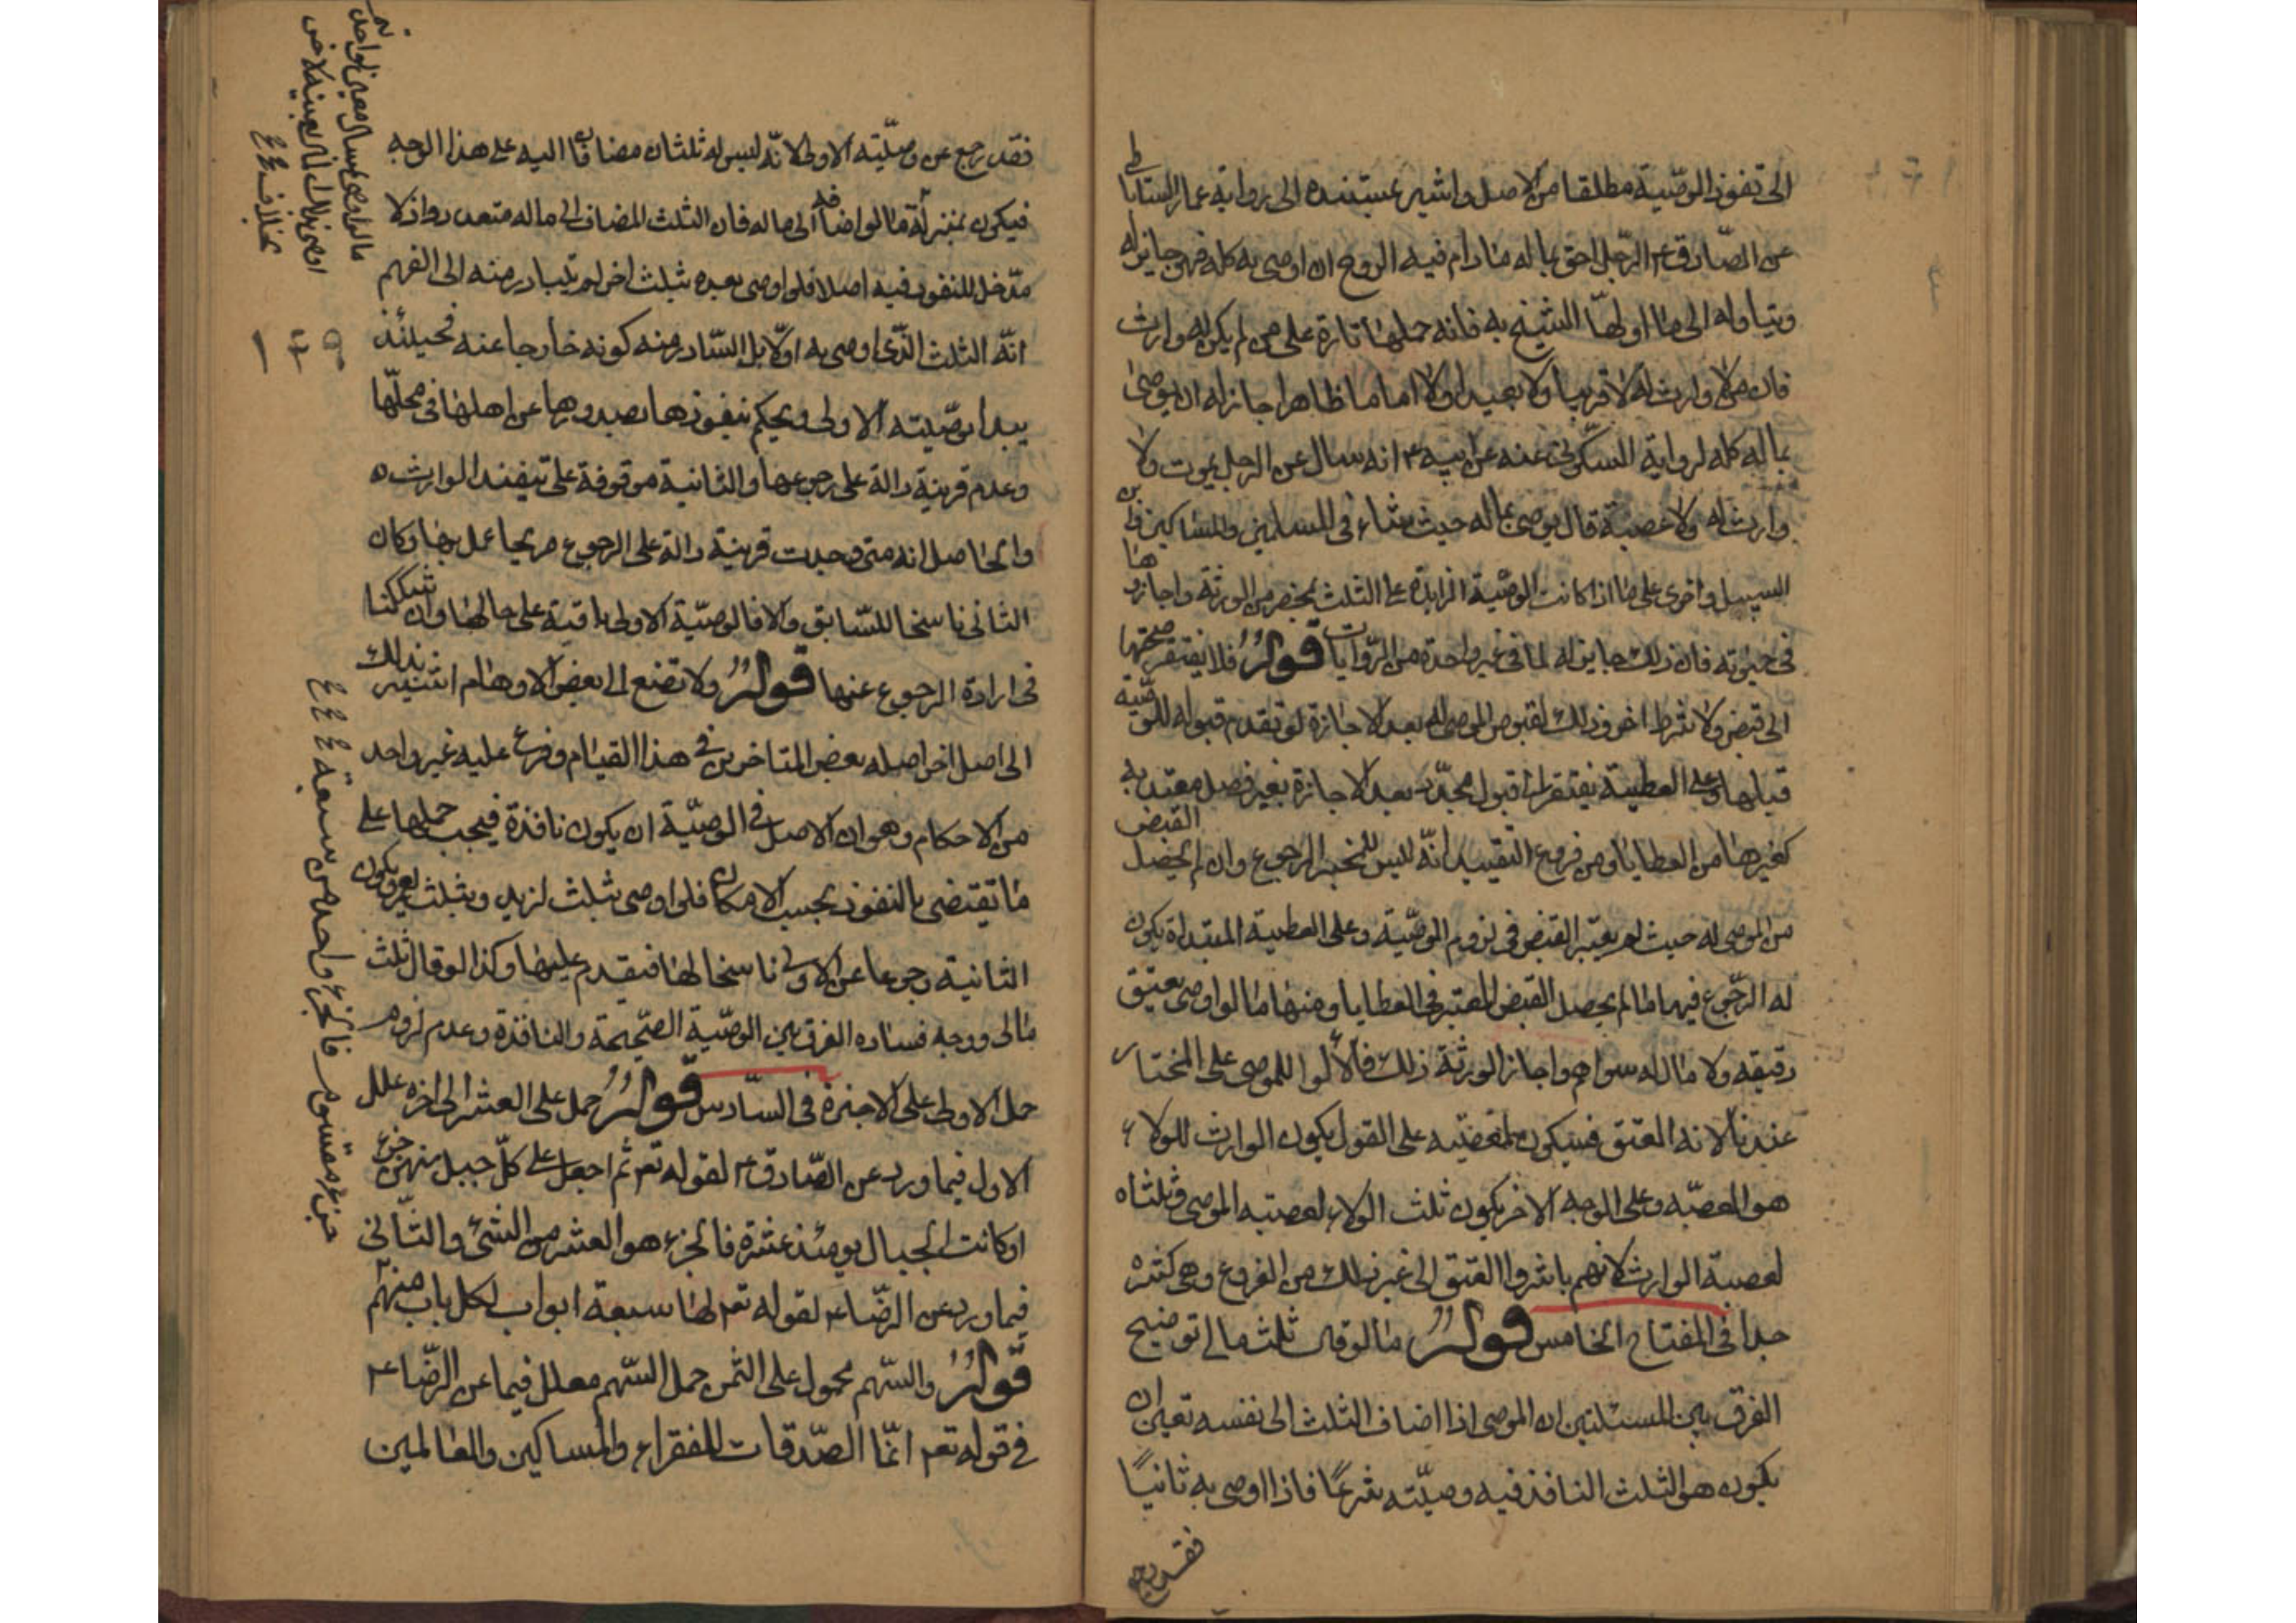 الى نفوذ الوصّية مطلقا من الاصل واشير بمستنده الى رواية عمار الساباطى
عن الصّادق ع الرّجل احق بماله مادام فيه الروح ان اوصى به كله فهو جايز له
وبتاوله الى ما اولهّا الشيخ به فانه حملها تارة على من لم يكن له وارث
فان من لا وارث له لا قريبا ولا بعيدا ولا اماما ظاهرا جاز له ان يوصى
بماله كله لرواية السكّونى عنه عن ابيه ع انه سال عن الرجل يموت ولا
وارث له ولا عصبة قال يوصى بماله حيث شاء فى المسلمين والمساكين وابن
السبيل واخرى على ما اذا كانت الوصّية الزايدة على الثلث بمحضر من الورثة واجازوها
فى حيوته فان ذلك جايز له لما فى غير واحدة من الرّوايات قولرُ فلا يفتقر صحتها
الى قبض ولا شرط اخر وذلك لقبوص الموصى له بعد الاجازة لو تقدم قبوله للوصّية
قبلها وعلى العطية يفتقر الى قبول مجدّد بعد الاجازة بغير فصل معتد به
كغيرها من العطايا ومن فروع التقييد انّه ليس للمخبر الرجوع وان لم يحصل القبض
من الموصى له حيث لم يعتبر القبض فى لزوم الوصّية وعلى العطية المبتداة يكون
له الرّجوع فيها ما لم يحصل القبض المعتبر فى العطايا ومنها ما لو اوصى بعتق
رقيقه ولا مال له سواهم واجاز الورثة ذلك فالولا للموصى على المختار
عندنا لانه المعتق فيكون لعصبته على القول بكون الوارث للولاء
هو العصبّه وعلى الوجه الاخر يكون ثلث الولاء لعصبته الموصى وثلثاه
لعصبة الوارث لانهم باشروا العتق الى غير ذلك من الفروع وهى كثيره
جدا فى المفتاح الخامس قولرُ ما لو قال ثلث مالى توضيح
الفرق بين المسئلتين ان الموصى اذا اضاف الثلث الى نفسه تعين ان
يكون هو الثلث النافذ فيه وصيّته شرعًا فاذا اوصى به ثانيًا
فقد رجع
فقد رجع عن وصيّته الاولى لانّه ليس له ثلثان مضافا اليه على هذا الوجه
فيكون بمنزلة ما لو اضافه الى ماله فان الثلث المضاف الى ماله متعدد واذ لا
مدّخل للنفوذ فيه اصلا فلو اوصى بعده بثلث اخر لم يتبادر منه الى الفهم
انّه الثلث الذّى اوصى به اوّلا بل التّبادر منه كونه خارجا عنه فحينئذ
يبدا بوصّيته الاولى ويحكم بنفوذها بصدورها عن اهلها فى محلّها
وعدم قرينة دالة على رجوعها والثانية موقوفة على تنفيذ الوارث
والحاصل انه متى وجدت قرينة دالة على الرجوع صريحا عمل بها وكان
الثانى ناسخا للسّابق والا فالوصّية الاولى باقية على حالها وان شككنا
فى ارادة الرجوع عنها قولرُ ولا تصنع الى بعض الاوهام اشير بذلك
الى اصل اخر اصله بعض المتاخرين فى هذا المقام وفرع عليه غير واحد
من الاحكام وهو ان الاصل فى الوصّية ان يكون نافذة فيجب حملها على
ما تقتضى بالنفوذ بحسب الامكان فلو اوصى بثلث لزيد وبثلث لعمر ويكون
الثانية رجوعا عن الاولى ناسخا لها فيقدم عليها وكذا لو قال ثلث
مالى ووجه فساده الفرق بين الوصّية الصّحيحة والنافذة وعدم لزوم
حمل الاولى على الاخيرة فى السّادس قولرُ حمل على العشر الى اخره علل
الاول فيما ورد عن الصّادق ع لقوله تع ثم اجعل على كلّ جبل منهن جزء
او كانت الجبال يومئذ عشرة فالجزء هو العشر من الشئ والثّانى
فيما ورد عن الرضّا ع لقوله تع لها سبعة ابواب لكل باب منهم
قولرُ والسّهم محمول على الثمن حمل السّهم معلل فيما عن الرّضا ع
فى قوله تع انمّا الصّدقات للفقراء والمساكين والعاملين
مالو اوصى بمال معين لواحد ثم
اوصى بذلك المال بعينه لاخر
بخلاف ع ع
١٤٩
جزء مقسوم فالجزء واحد من سبعة ع ع ع